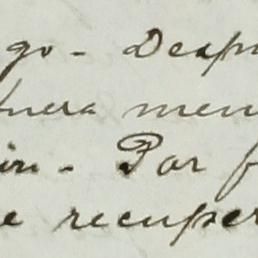 go - Desp
nera men
in - Por f
e recuper